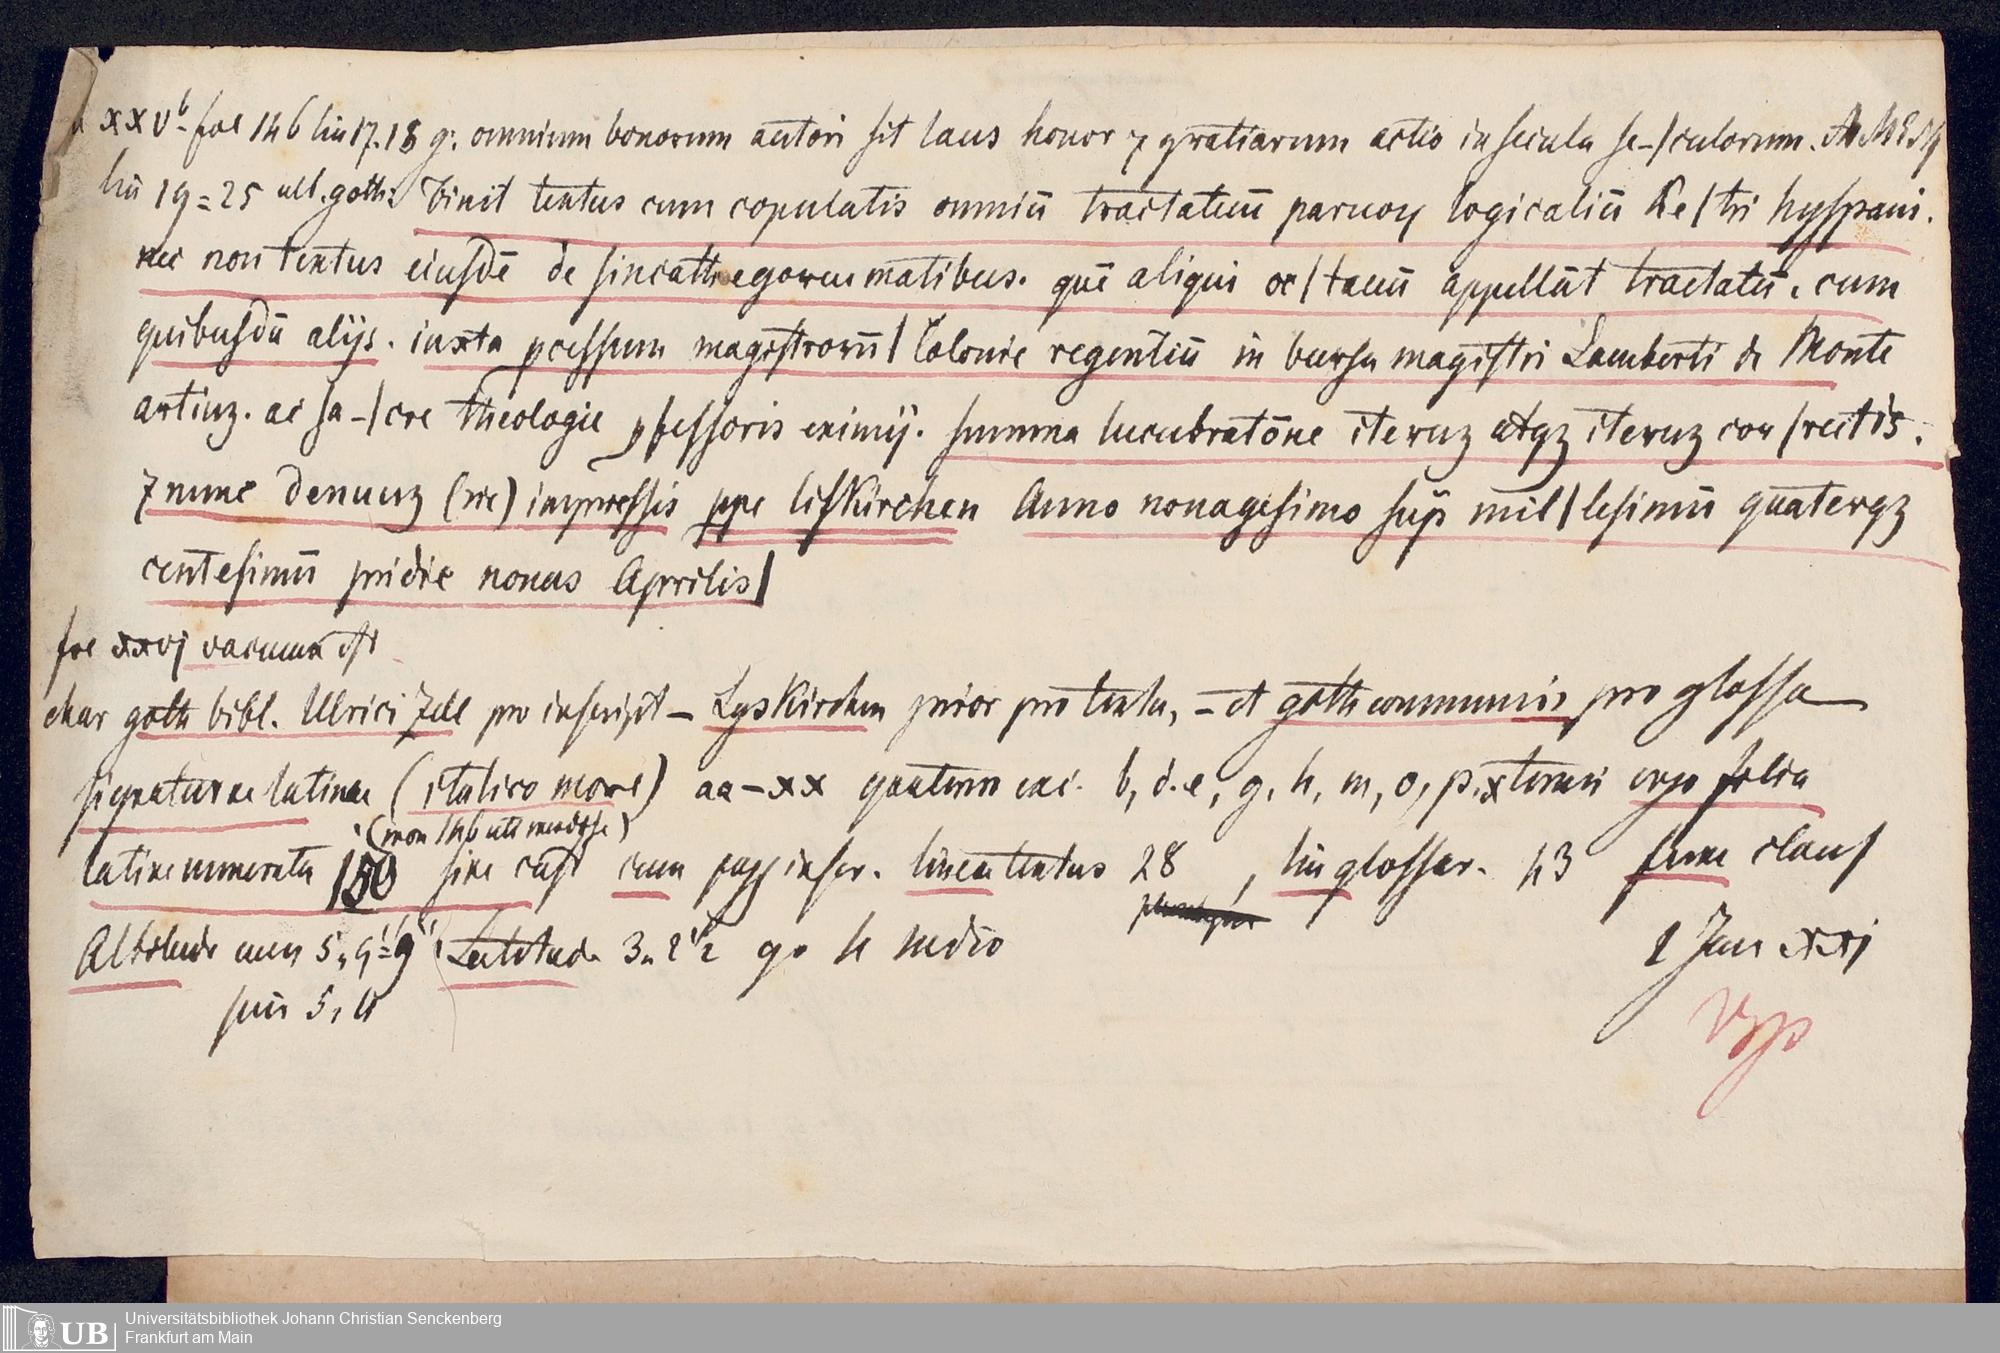 xxv b fol 146 lin 17.18 g: omnium bonorum autori sit laus honor ⁊ gratiarum actio in secula se-|culorum. AMEN
lin 19=25 ult. goth: Finit textus cum copulatis omniū tractatuū paruoꝝ logicaliū Pe|tri hyspani.
nec non textus eiusdē de sincathegoreumatibus. quē aliqui oc|tauū appellāt tractatū. cum
quibusdā alijs. iuxta ꝓcessum magistrorū| Colonie regentiū in bursa magistri Lamberti de Monte
artiuꝫ. ac sa-|cre theologie ꝓfessoris eximij. summa lucubratōne iteruꝫ atqꝫ iteruꝫ cor|rectis.
⁊ nunc denuuꝫ (sic) impressis ꝓpe lisKirchen Anno nonagesimo suꝑ mil|lesimū quaterqꝫ
centesimū pridie nonas Aprilis|
fol xxvj vacuum est
char goth bibl. Ulrici Zell pro inscript – LysKirchen prior pro textu, – et goth communis pro glossa
signaturae latinae (italico more) aa–xx quaterni exc. b, d. e, g, h, m, o, p, x terni ergo folia
(non 146 uti )
latine numerata 150 sine cust cum pagg inscr. lineae textus 28, lin glossar. 43 clausf
Altitudo 5, 9 Latitudo 3. 2 1/2 go h medio
1 Jan xxj
5, 4
Universitätsbibliothek Johann Christian Senckenberg
UB Frankfurt am Main